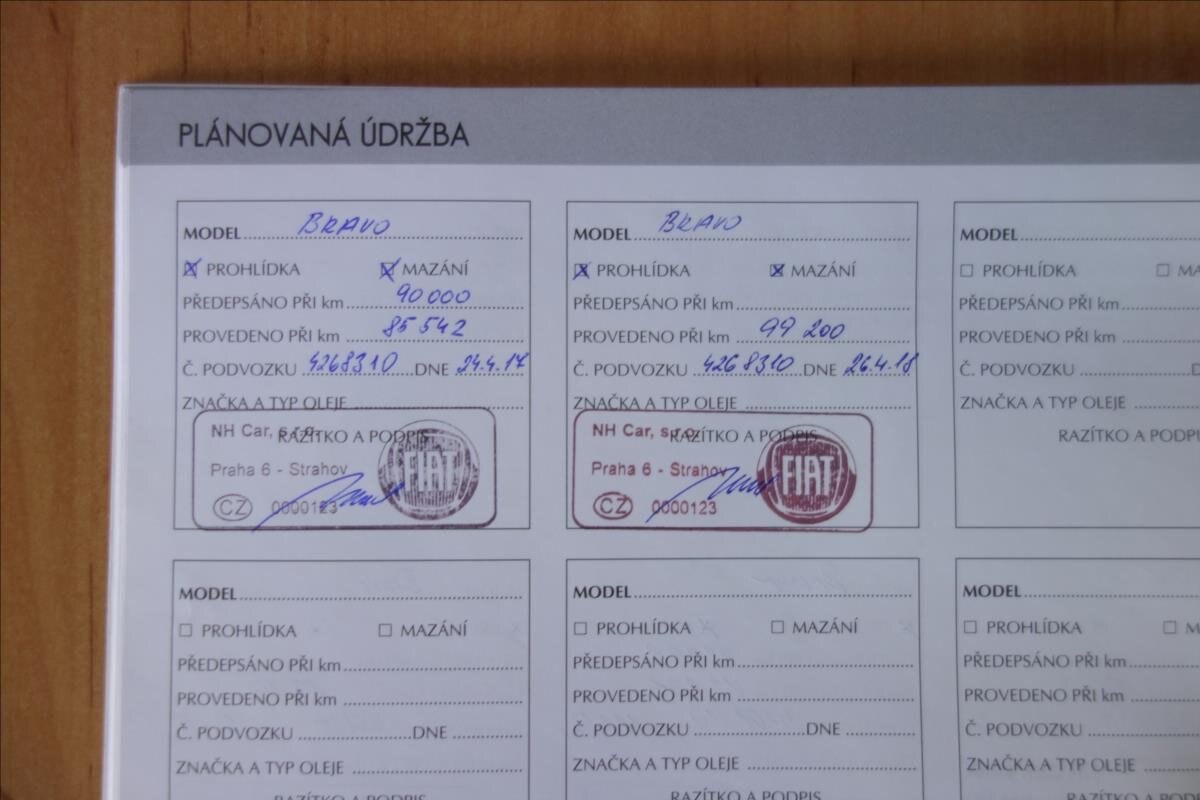 PLÁNOVANÁ ÚDRŽBA
MODEL BRAVO
☒ PROHLÍDKA ☒ MAZÁNÍ
PŘEDEPSÁNO PŘI km 90 000
PROVEDENO PŘI km 85 542
Č. PODVOZKU 4268310 DNE 24.4.17
ZNAČKA A TYP OLEJE
RAZÍTKO A PODPIS
NH Car, s.r.o.
Praha 6 - Strahov
CZ 0000123
FIAT
MODEL BRAVO
☒ PROHLÍDKA ☒ MAZÁNÍ
PŘEDEPSÁNO PŘI km
PROVEDENO PŘI km 99 200
Č. PODVOZKU 4268310 DNE 26.4.18
ZNAČKA A TYP OLEJE
RAZÍTKO A PODPIS
NH Car, s.r.o.
Praha 6 - Strahov
CZ 0000123
FIAT
MODEL
☐ PROHLÍDKA ☐ MA
PŘEDEPSÁNO PŘI km
PROVEDENO PŘI km
Č. PODVOZKU D
ZNAČKA A TYP OLEJE
RAZÍTKO A PODPI
MODEL
☐ PROHLÍDKA ☐ MAZÁNÍ
PŘEDEPSÁNO PŘI km
PROVEDENO PŘI km
Č. PODVOZKU DNE
ZNAČKA A TYP OLEJE
RAZÍTKO A PODPIS
MODEL
☐ PROHLÍDKA ☐ MAZÁNÍ
PŘEDEPSÁNO PŘI km
PROVEDENO PŘI km
Č. PODVOZKU DNE
ZNAČKA A TYP OLEJE
RAZÍTKO A PODPIS
MODEL
☐ PROHLÍDKA ☐ M
PŘEDEPSÁNO PŘI km
PROVEDENO PŘI km
Č. PODVOZKU
ZNAČKA A TYP OLEJE
RAZÍTKO A POD